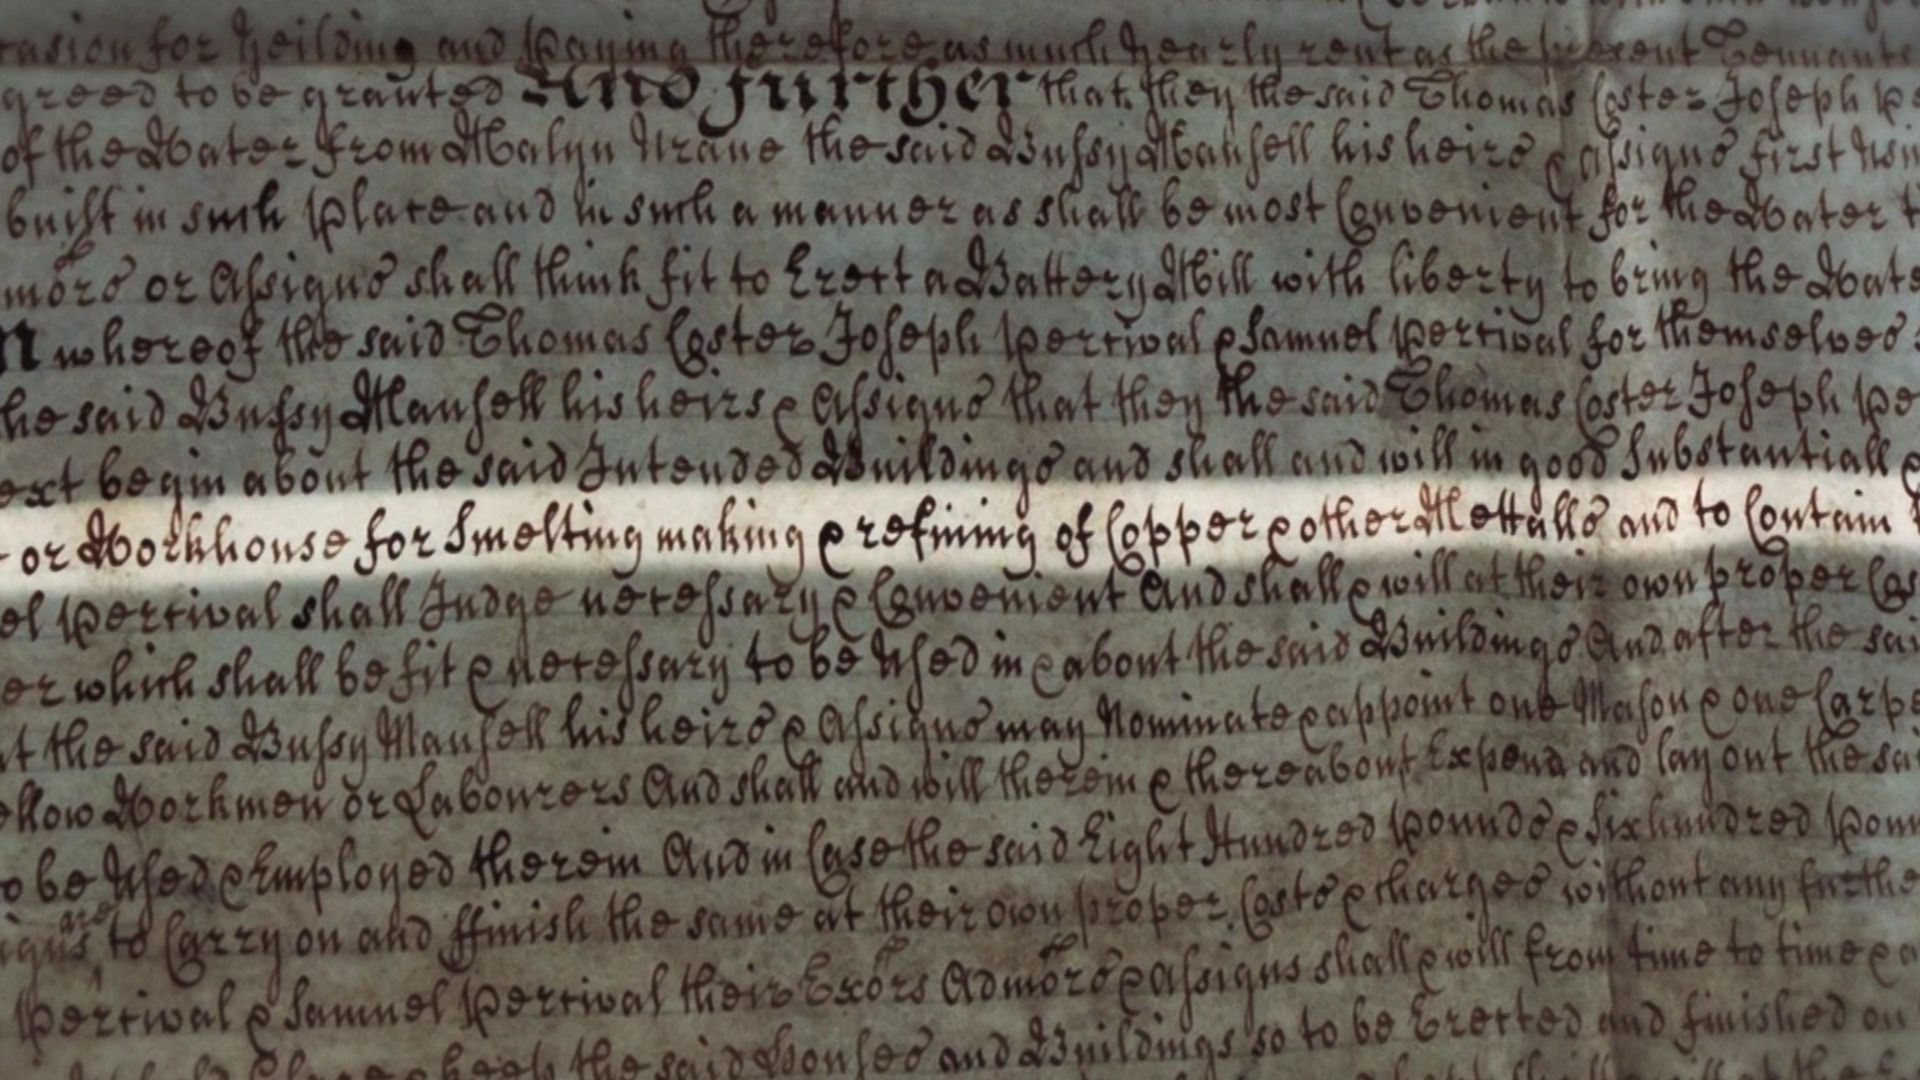 for yeilding and paying therefore as much yearly rent as the present Tennants
greed to be granted And further that they the said Thomas Coster Joseph Pe
of the Water from Malyn Crane the said Bussy Mansell his heirs & assignes first
built in such place and in such a manner as shall be most Convenient for the Water t
mors or Assignes shall think fit to Erect a Battery Mill with liberty to bring the Wate
n whereof the said Thomas Coster Joseph Percival & Samuel Percival for themselves
he said Bussy Mansell his heirs & Assignes that they the said Thomas Coster Joseph Pe
ext begin about the said Intended Buildings and shall and will in good Substantiall &
or Workhouse for Smelting making & refining of Copper & other Mettalls and to Contain
el Percival shall Judge necessary & Convenient And shall & will at their own proper Cos
er which shall be fit & necessary to be Used in & about the said Buildings And after the sai
t the said Bussy Mansell his heirs & Assignes may Nominate & appoint one Mason & one Carpe
ellow Workmen or Labourers And shall and will therein & thereabout Expend and lay out the sai
o be Used & Employed therein And in Case the said Eight Hundred Pounds & Six hundred Poun
igns are to Carry on and ffinish the same at their own proper Costs & charges without any furthe
Percival & Samuel Percival their Exors Admors & assigns shall & will from time to time & a
keep the said Houses and Buildings so to be Erected and finished on